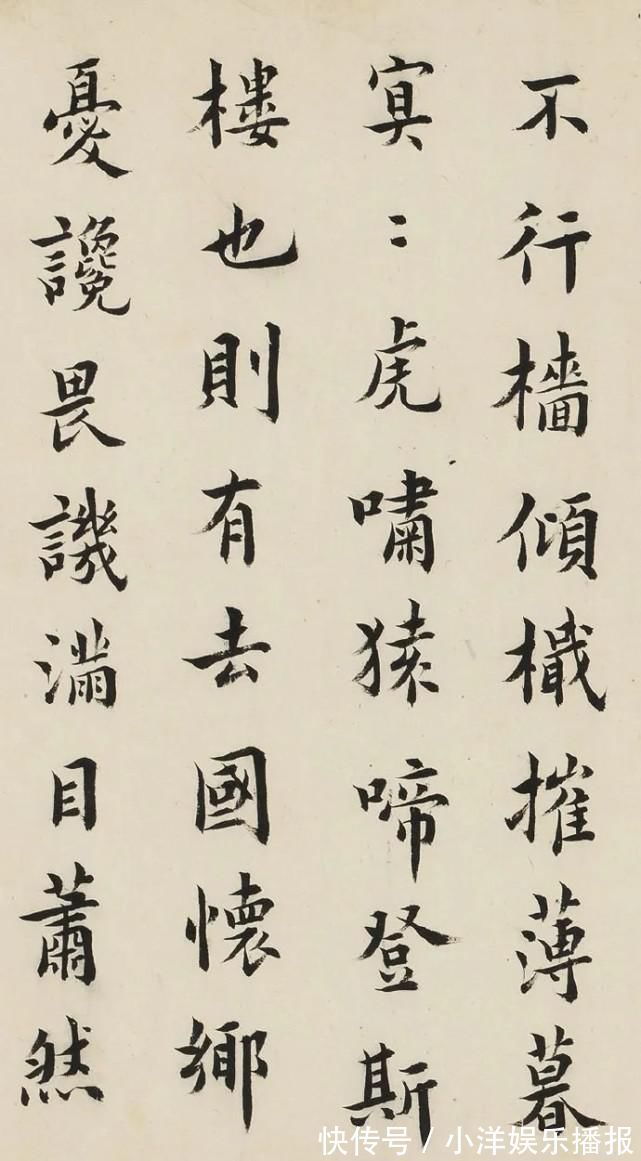 不行檣傾檝摧薄暮
冥〻虎嘯猿啼登斯
樓也則有去國懷鄉
憂讒畏譏滿目蕭然
快传号/小洋娱乐播报